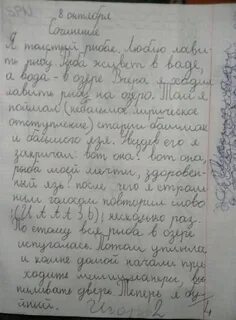 8 октября
Сочинение
Я толстый рыбак. Люблю лави-
ть рыбу. Рыба живёт в ваде,
а вода - в озере. Вчера я ходил
лавить рыбу на озеро. Там я
поймал (небальшое лирическое
отступление) старый башмак
и бальшого язя. Увидев его я
закричал: вот она! вот она,
рыба моей мечты, здоровен-
ный язь! после чего я страш
ным голосом повторил слово
несколько раз
По етому вся рыба в озере
испугалась. Потом уплыла
и ко мне домой начали при
ходить
двери. Теперь я бу
йный.